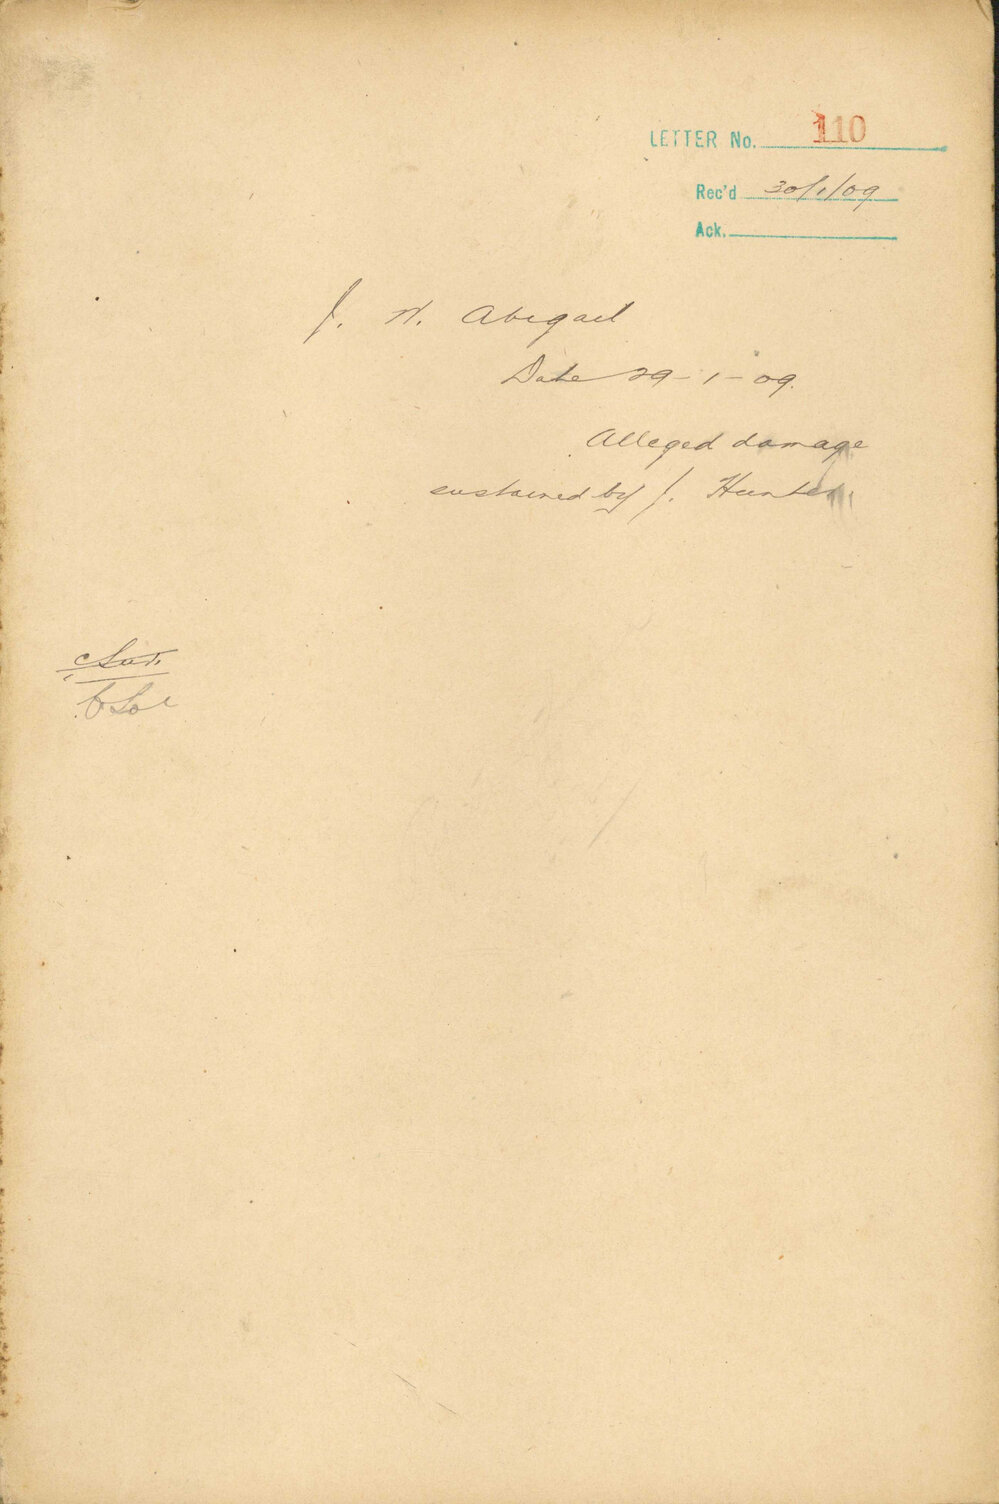 LETTER No. 110
Rec'd 30/1/09
Ack.
J. W. Abigail
Date 29-1-09.
Alleged damage
sustained by J. Hunter.